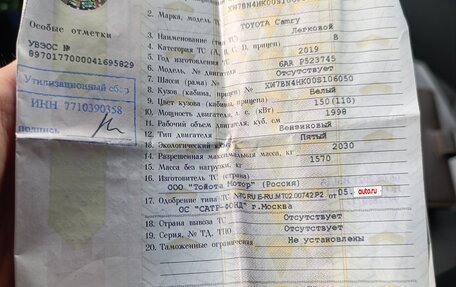 Особые отметки
УВЭОС №
8970177000041695829
Утилизационный сбор
ИНН 7710390358
подпись
XW7BN4HK00S106050
2. Марка, модель ТС
TOYOTA Camry
3. Наименование (тип ТС) Легковой
4. Категория ТС (A, B, C, D, прицеп) B
5. Год изготовления ТС 2019
6. Модель, № двигателя 6AR P523745
7. Шасси (рама) № Отсутствует
8. Кузов (кабина, прицеп) № XW7BN4HK00S106050
9. Цвет кузова (кабины, прицепа) Белый
10. Мощность двигателя, л. с. (кВт) 150(110)
11. Рабочий объем двигателя, куб. см 1998
12. Тип двигателя Бензиновый
13. Экологический Пятый
14. Разрешенная максимальная масса, кг 2030
15. Масса без нагрузки, кг 1570
16. Изготовитель ТС (страна)
ООО "Тойота Мотор" (Россия)
17. Одобрение типа ТС № ТС RU E-RU.MT02.00742.P2 от 05.
auto.ru
ОС "САТР-ФОНД" г.Москва
18. Страна вывоза ТС Отсутствует
19. Серия, № ТД, ТПО Отсутствует
20. Таможенные ограничения Не установлены